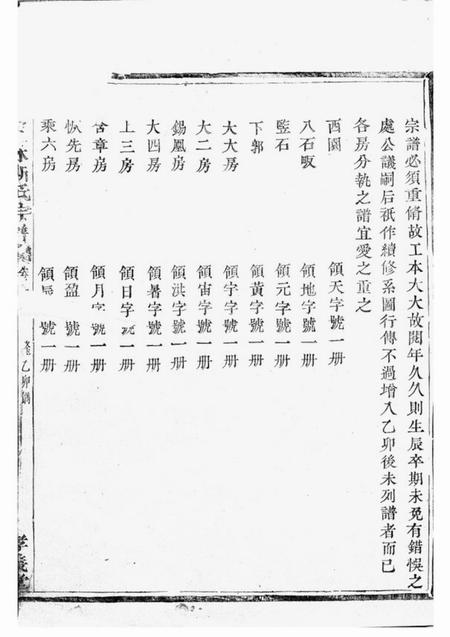 宗譜必須重脩故工本大大故閱年久久則生辰卒期未免有錯悞之
處公議嗣后祇作續修系圖行傳不過增入乙卯後未列譜者而已
各房分執之譜宜愛之重之
西園 領天字號一册
八石畈 領地字號一册
監石 領元字號一册
下郭 領黃字號一册
大大房 領宇字號一册
大二房 領宙字號一册
錫鳳房 領洪字號一册
大四房 領暑字號一册
上三房 領日字號一册
含章房 領月字號一册
恢先房 領盈 號一册
乘六房 領 號一册
氏宗譜
乙卯
孝義堂